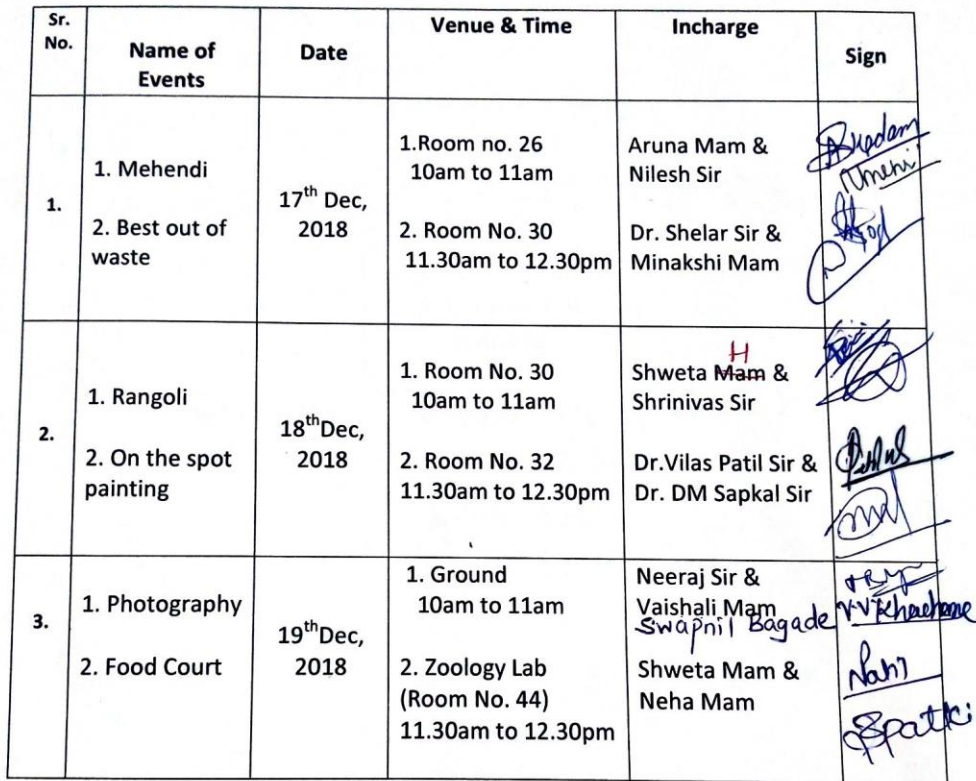 Sr. No.
Name of Events
Date
Venue & Time
Incharge
Sign
1.
1. Mehendi
2. Best out of
waste
17th Dec,
2018
1.Room no. 26
10am to 11am
2. Room No. 30
11.30am to 12.30pm
Aruna Mam &
Nilesh Sir
Dr. Shelar Sir &
Minakshi Mam
2.
1. Rangoli
2. On the spot
painting
18thDec,
2018
1. Room No. 30
10am to 11am
2. Room No. 32
11.30am to 12.30pm
H
Shweta Mam &
Shrinivas Sir
Dr.Vilas Patil Sir &
Dr. DM Sapkal Sir
3.
1. Photography
2. Food Court
19thDec,
2018
1. Ground
10am to 11am
2. Zoology Lab
(Room No. 44)
11.30am to 12.30pm
Neeraj Sir &
Vaishali Mam
Swapnil Bagade
Shweta Mam &
Neha Mam
Spatki